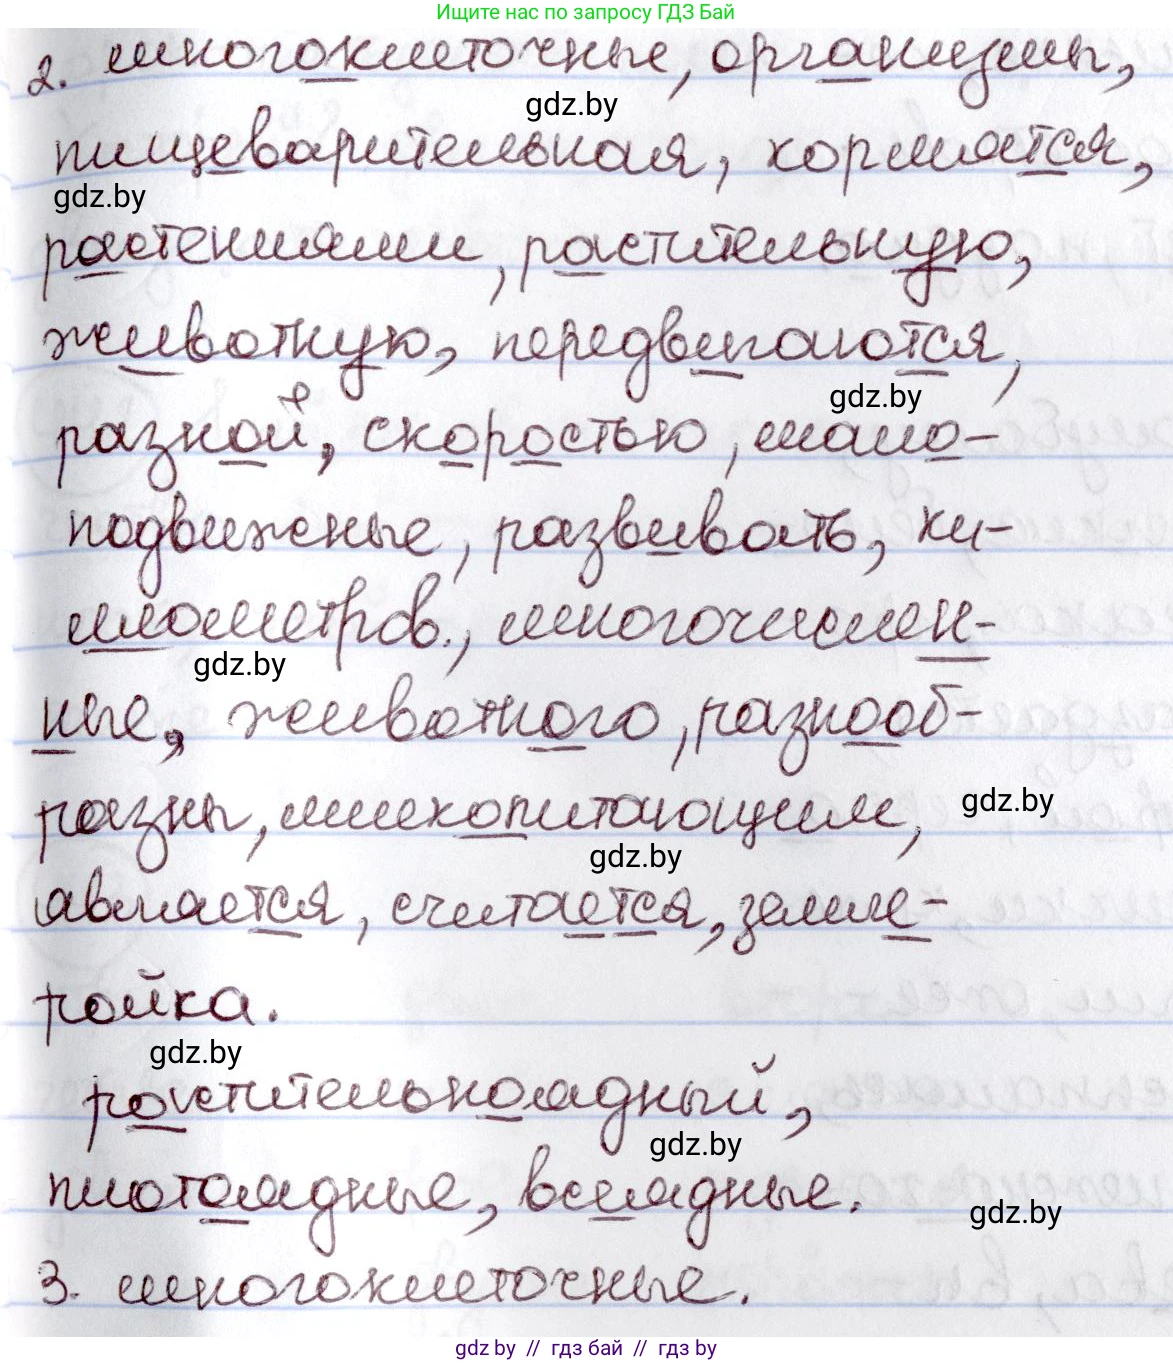 Ищите нас по запросу ГДЗ Бай
2. многоклеточные, организмы,
gdz.by
пищеварительная, кормятся,
gdz.by
растениями, растительную,
животную, передвигаются,
gdz.by
разной, скоростью, мало-
подвижные, развивать, ки-
лометров., многочислен-
gdz.by
ные, животного, разнооб-
разны, млекопитающим,
gdz.by
gdz.by
является, считается, земле-
ройка.
gdz.by
растительноядный,
gdz.by
плотоядные, всеядные.
gdz.by
3. многоклеточные.
gdz.by // гдз бай // гдз by